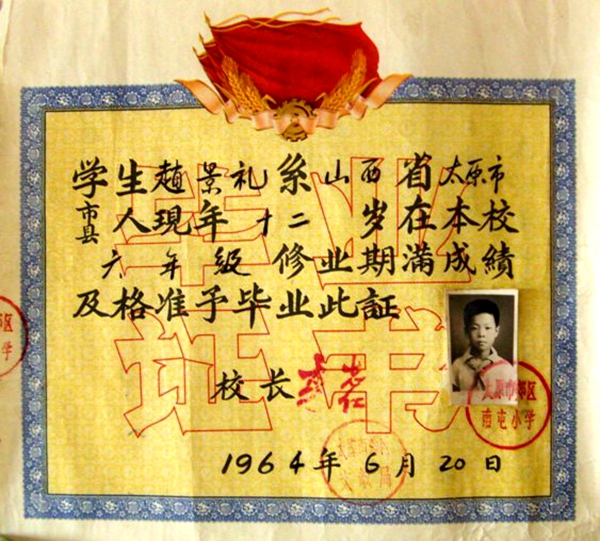 学生趙景礼系山西省太原市
市县人現年十二岁在本校
六年級修业期滿成績
及格准予毕业此証
毕业证书
校长
1964年6月20日
太原市郊区
南屯小学
郊区
学